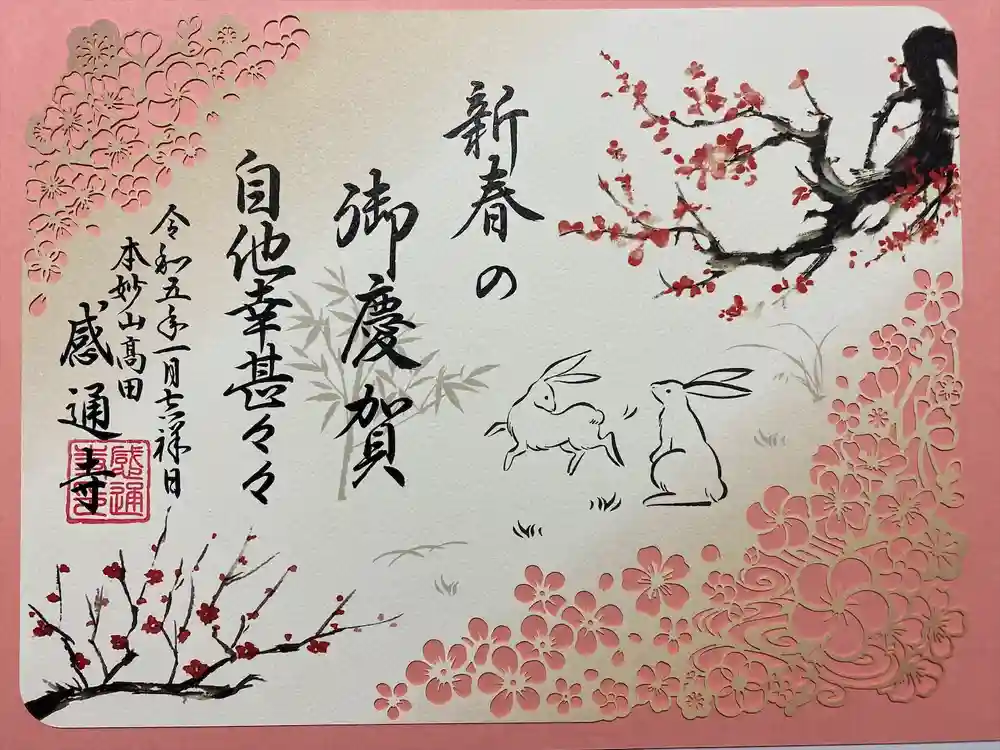 新春の
御慶賀
自他幸甚々々
令和五年一月吉祥日
本妙山高田
感通寺
感通寺印